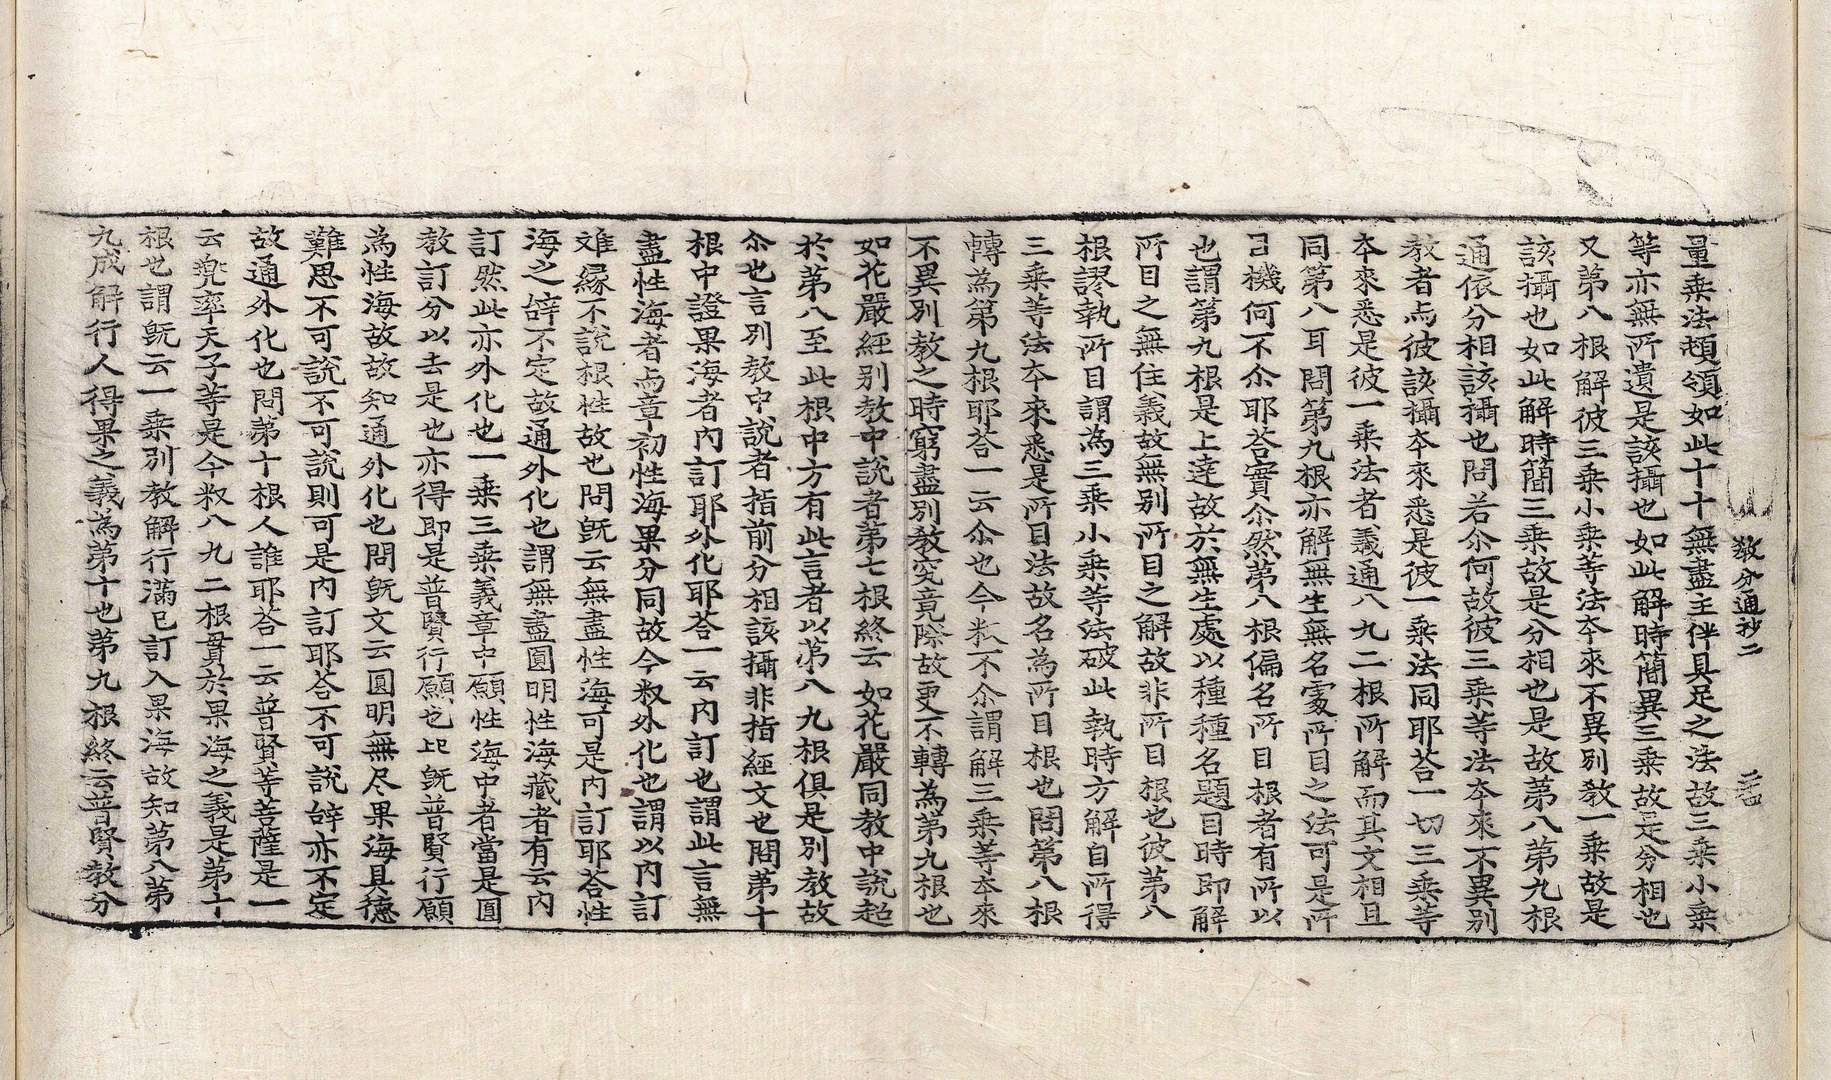 教分通抄二　二四
量乗法頓領如此十十無盡主伴具足之法故三乗小乗
等亦無所遺是該攝也如此解時簡異三乗故是分相也
又第八根解彼三乗小乗等法夲來不異別教一乗故是
該攝也如此解時簡三乗故是分相也是故第八第九根
通依分相該攝也問若尒何故彼三乗等法夲來不異別
教者占彼該攝夲來悉是彼一乗法同耶荅一切三乗等
夲來悉是彼一乗法者義通八九二根所解而其文相且
同第八耳問第九根亦解無生無名處所目之法可是所
目機何不尒耶荅實尒然第八根偏名所目根者有所以
也謂第九根是上達故於無生處以種種名題目時即解
所目之無住義故無別所目之解故非所目根也彼第八
根謬執所目謂為三乗小乗等法破此執時方解自所得
三乗等法夲來悉是所目法故名為所目根也問第八根
轉為第九根耶荅一云尒也今釈不尒謂解三乗等夲來
不異別教之時窮盡別教究竟際故更不轉為第九根也
如花嚴經別教中說者第七根終云如花嚴同教中說起
於第八至此根中方有此言者以第八九根俱是別教故
尒也言別教中說者指前分相該攝非指經文也問第十
根中證果海者內訂耶外化耶荅一云內訂也謂此言無
盡性海者占章初性海果分同故今釈外化也謂以內訂
雖縁不說根性故也問旣云無盡性海可是內訂耶荅性
海之辞不定故通外化也謂無盡圓明性海藏者有云內
訂然此亦外化也一乗三乗義章中願性海中者當是圓
教訂分以去是也亦得即是普賢行願也此旣普賢行願
為性海故故知通外化也問旣文云圓明無尽果海具德
難思不可說不可說則可是內訂耶荅不可說辞亦不定
故通外化也問第十根人誰耶荅一云普賢等菩薩是一
云兠率天子等是今釈八九二根貫於果海之義是第十
根也謂旣云一乗別教解行滿已訂入果海故知第八第
九成解行人得果之義為第十也第九根終云普賢教分